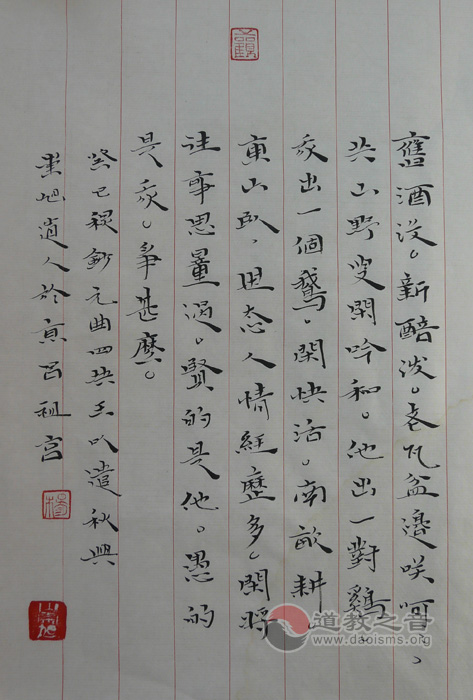 舊酒沒。新醅潑。老瓦盆邊咲呵〻、
共山野叟閑吟和。他出一對雞。
我出一個鵝。閑快活。南畝耕。
東山臥、世态人情經歷多。閑將
往事思量過。賢的是他。愚的
是我。爭甚麽。
癸巳鈔元曲四块玉以遣秋興
道人於京呂祖宮
道教之音
www.daoisms.org